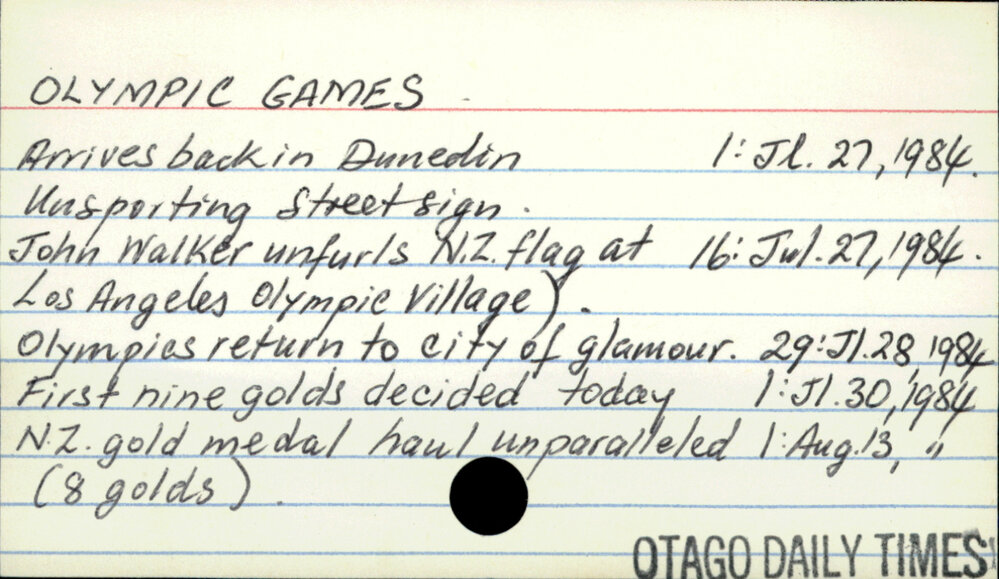 OLYMPIC GAMES
Arrives back in Dunedin 1: Jl. 27, 1984.
Unsporting Street sign.
John Walker unfurls N.Z. flag at 16: Jul. 27, 1984.
Los Angeles Olympic Village).
Olympics return to city of glamour. 29: Jl. 28, 1984
First nine golds decided today 1: Jl. 30, 1984
N.Z. gold medal haul unparalleled 1: Aug. 13, "
(8 golds).
OTAGO DAILY TIMES